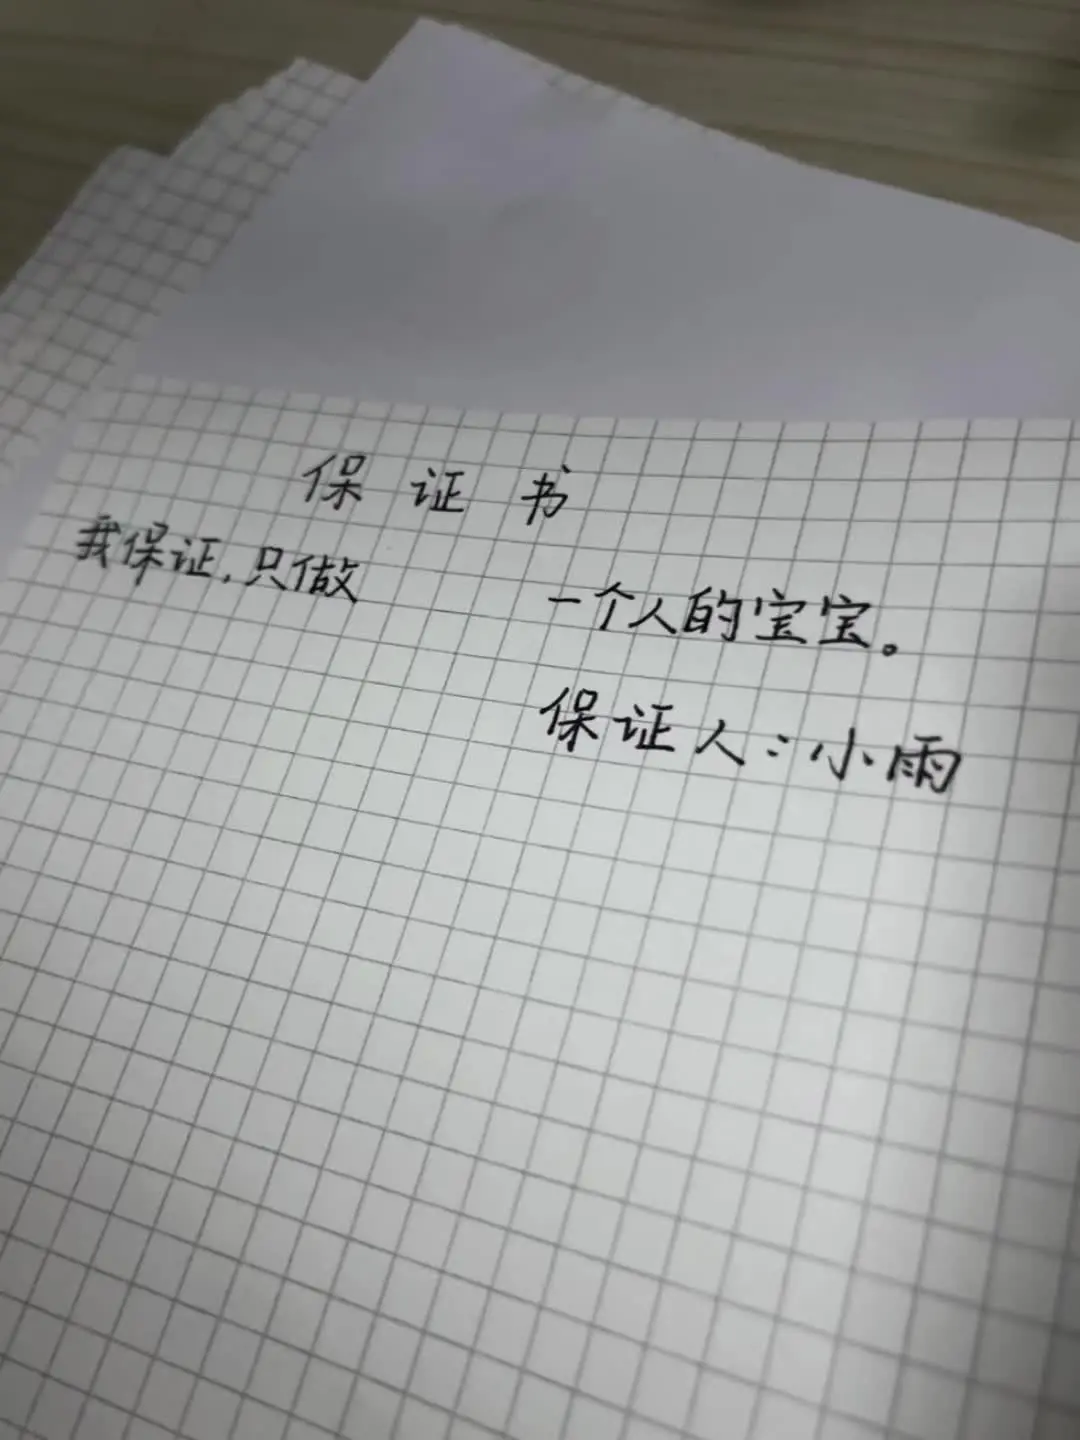 保证书
我保证,只做 一个人的宝宝。
保证人:小雨